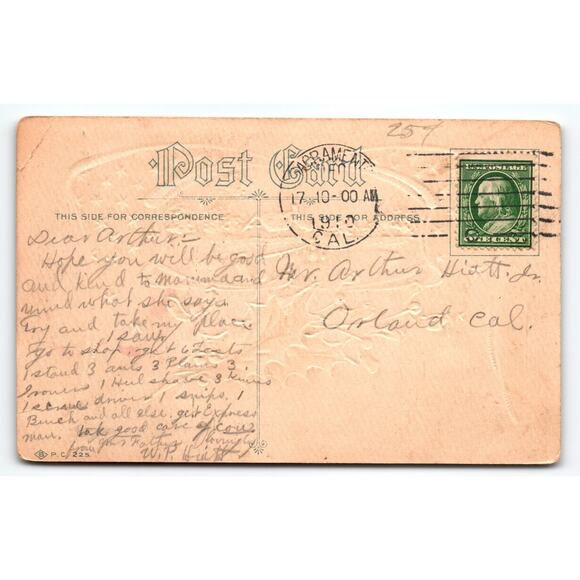 257
Post Card
THIS SIDE FOR CORRESPONDENCE
THIS SIDE FOR ADDRESS
SACRAMENTO
17 10-00 AM
1910
CAL
U.S. POSTAGE
ONE CENT
Dear Arthur:-
Hope you will be good
and kind to mamma and
mind what she says
Try and take my place
1 saw
go to shop, get 6
1 stand 3 3 Planes 3
1 shave 3
1 screw driver 1 snips. 1
Bench and all else, get Express
man. take good care of cow
from your Father lovingly
W.P. Hiatt
Mr. Arthur Hiatt Jr.
Orland Cal.
P.C. 225